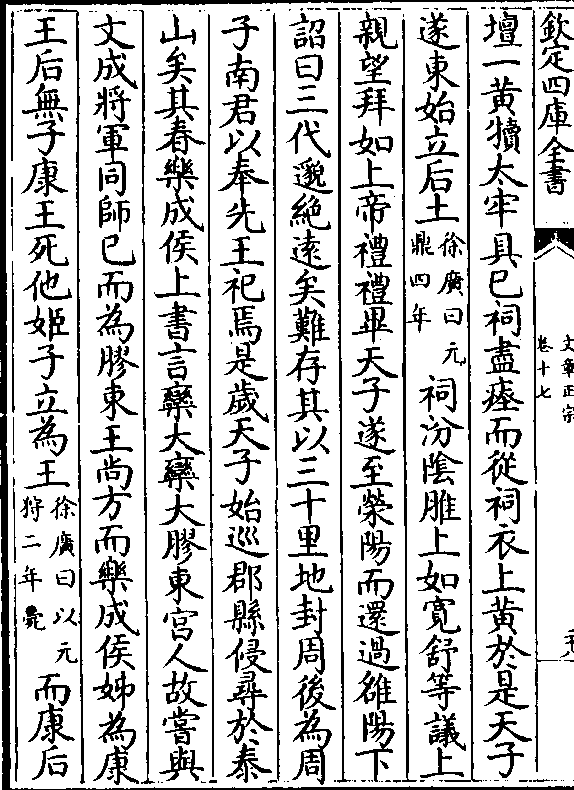 欽定四庫全書
文章正宗
卷十七
壇一黄犢太牢具已祠盡瘞而從祠衣上黄於是天子
遂東始立后土徐廣曰元鼎四年祠汾陰脽上如寛舒等議上
親望拜如上帝禮禮畢天子遂至滎陽而還過雒陽下
詔曰三代邈絶遠矣難存其以三十里地封周後為周
子南君以奉先王祀焉是歲天子始巡郡縣侵尋於泰
山矣其春樂成侯上書言欒大欒大膠東宫人故嘗與
文成將軍同師已而為膠東王尚方而樂成侯姊為康
王后無子康王死他姬子立為王徐廣曰以元狩二年薨而康后